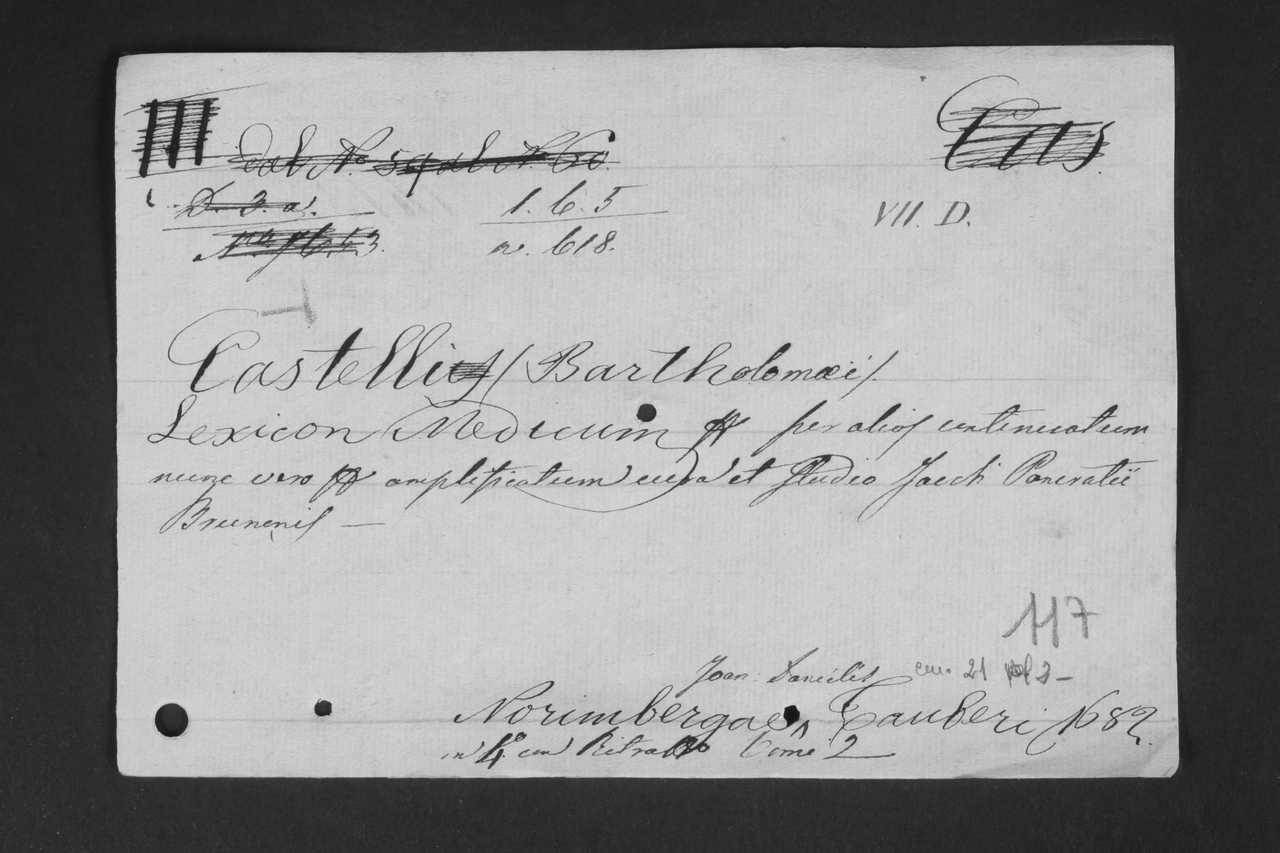 III
Cas.
D. 3. a.
1. 6. 5
VII. D.
n. 618.
Castelli (Bartholomæi)
Lexicon Medicum per alios continuatum
nunc vero amplificatum cura et studio Jacobi Pancratii
Brunonis —
117
Joan: Danielis 21
Norimbergae Tauberi 1682.
in 4º con Ritratto Tome 2